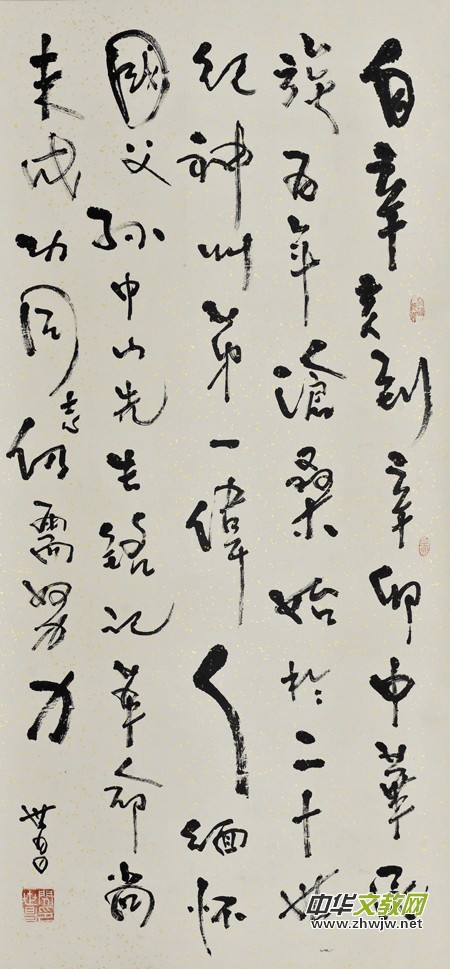 自辛亥到辛卯中華民
族百年滄桑始於二十世
紀神州第一偉人緬怀
國父孫中山先生銘記革命尚
未成功同志仍需努力
中华文教网
www.zhwjw.net